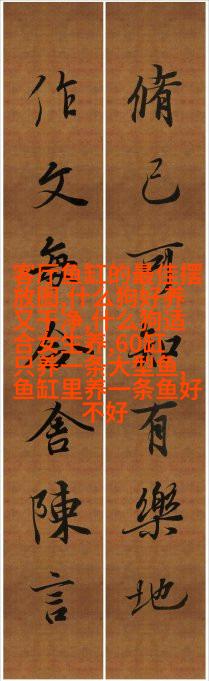 脩己可知有樂地
作文舍陳言
客厅鱼缸的最佳摆
放图,什么狗好养
又干净,什么狗适
合女生养,60缸
只养一条大型鱼,
鱼缸里养一条鱼好
不好